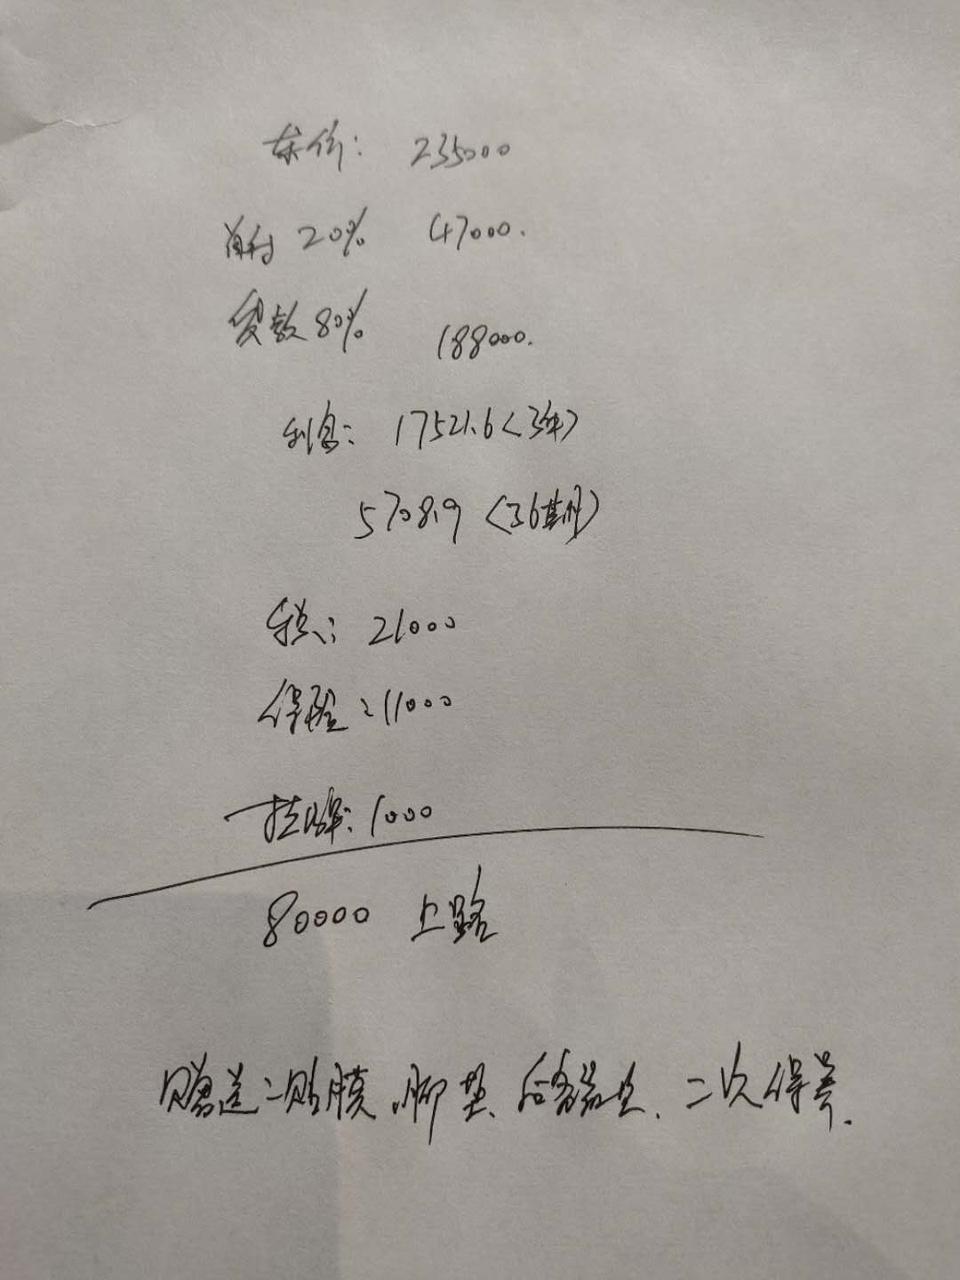 车价: 235000
首付 20% 47000.
贷款 80% 188000.
利息: 17521.6 <3年>
5708.9 <36期>
税: 21000
保险: 11000
挂牌: 1000
80000 上路
赠送: 贴膜、脚垫、后备箱垫、二次保养.